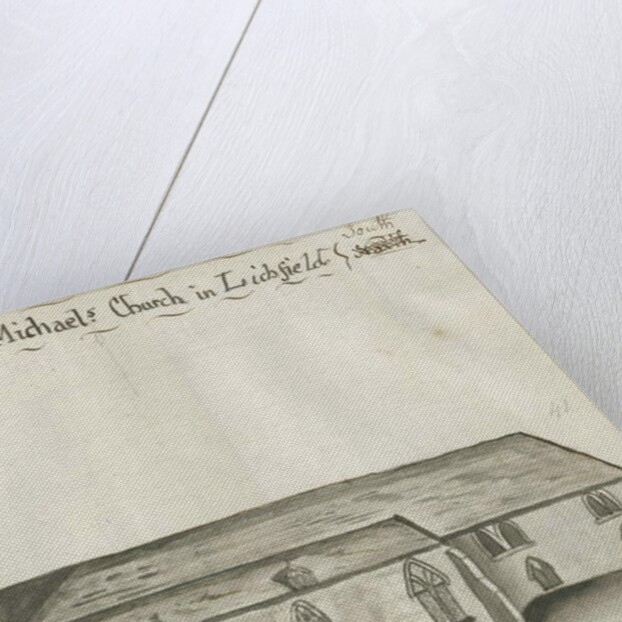 South
Michaels Church in Lichfield
41